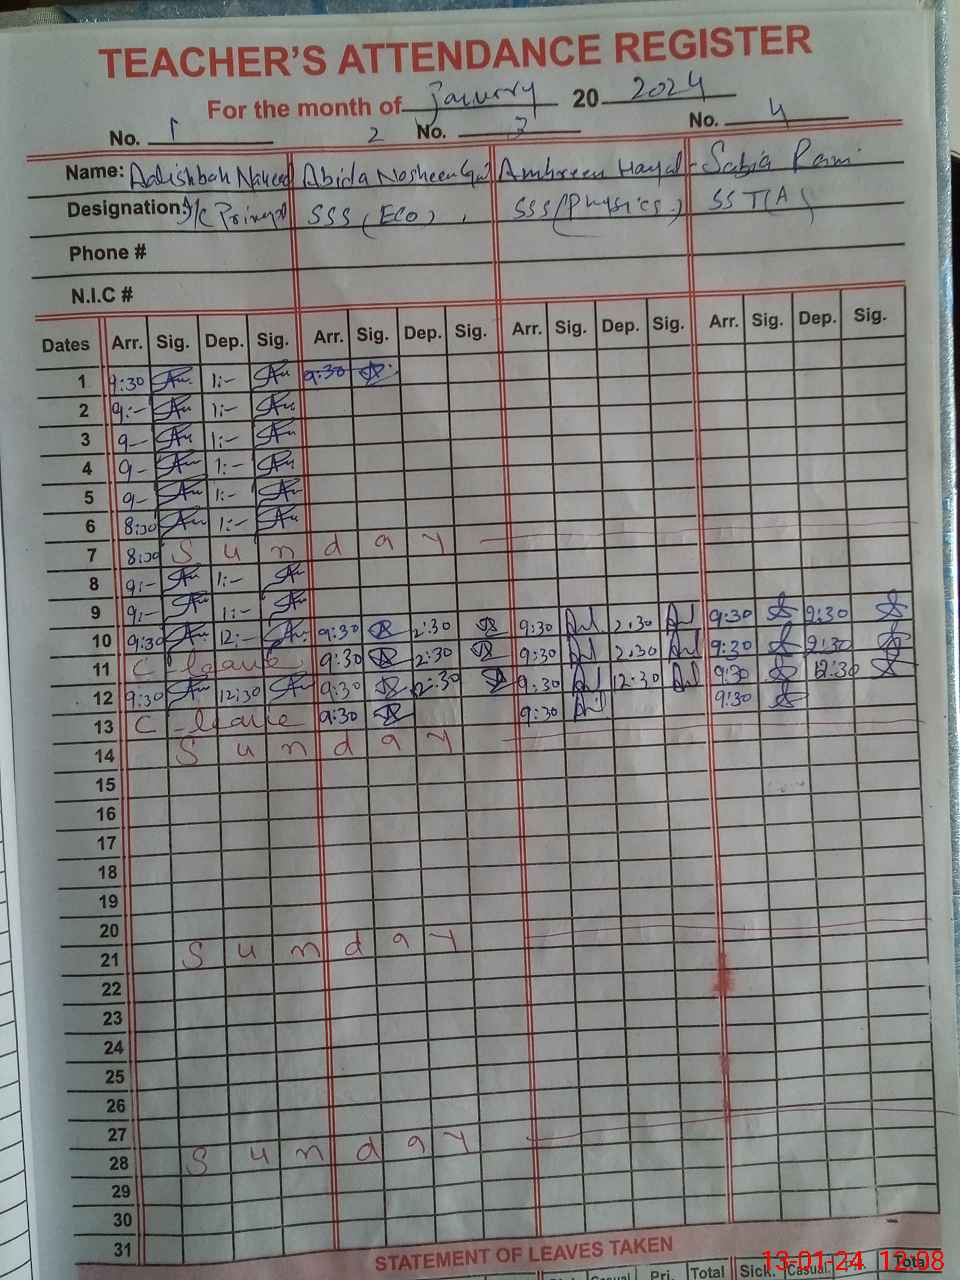 TEACHER'S ATTENDANCE REGISTER
For the month of January 20 2024
No. 1 2 No. 3 No. 4
Name: Aalishbah Naveed Abida Nosheen Gul Ambreen Hayat Sabia
Designation: I/C Principal SSS (Eco) SSS (Physics) SST(A)
Phone #
N.I.C #
Dates Arr. Sig. Dep. Sig. Arr. Sig. Dep. Sig. Arr. Sig. Dep. Sig. Arr. Sig. Dep. Sig.
1 9:30 1:- 9:30
2 9:- 1:-
3 9- 1:-
4 9- 1:-
5 9- 1:-
6 8:30 1:-
7 8:30 Sunday
8 9:- 1:-
9 9:- 1:-
10 9:30 12:- 9:30 2:30 9:30 2:30 9:30 2:30
11 C-leave 9:30 2:30 9:30 2:30 9:30 2:30
12 9:30 12:30 9:30 12:30 9:30 12:30 9:30 12:30
13 C-leave 9:30 9:30 9:30
14 Sunday
15
16
17
18
19
20
21 Sunday
22
23
24
25
26
27
28 Sunday
29
30
31
STATEMENT OF LEAVES TAKEN
Pri. Total Sick. Casual Total
13-01-24 12:08